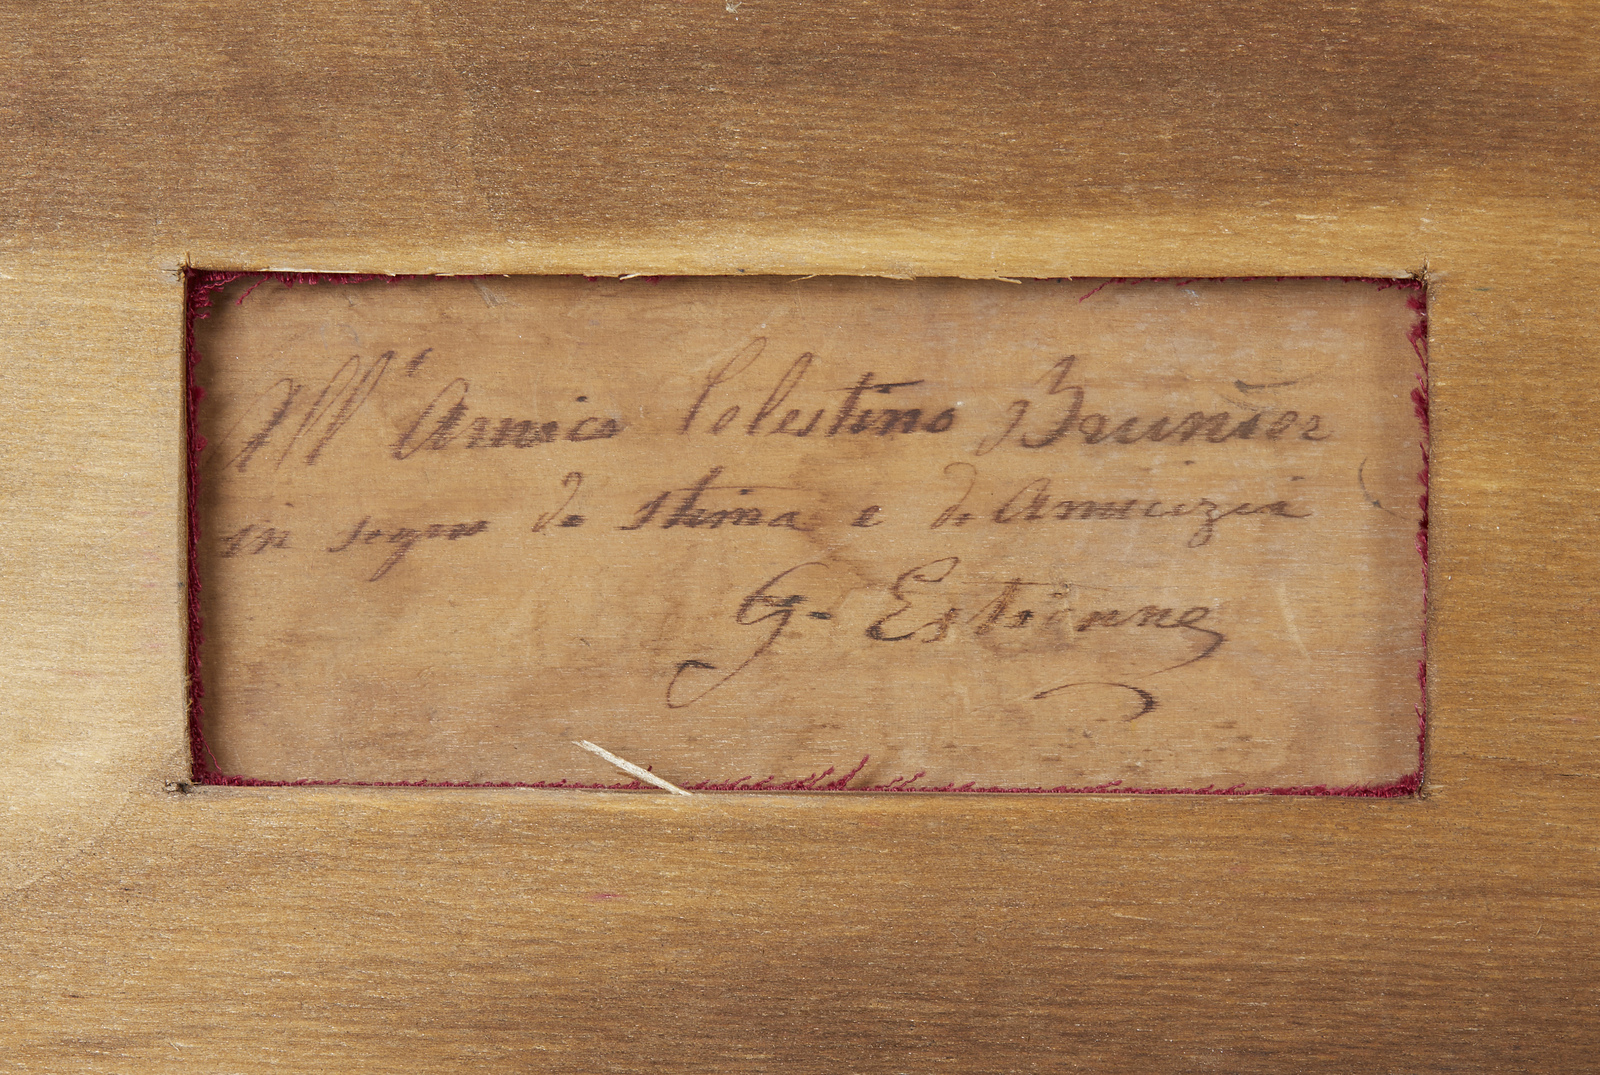 All' Amico Celestino Brunier
in segno di stima e di Amicizia
G. Estienne